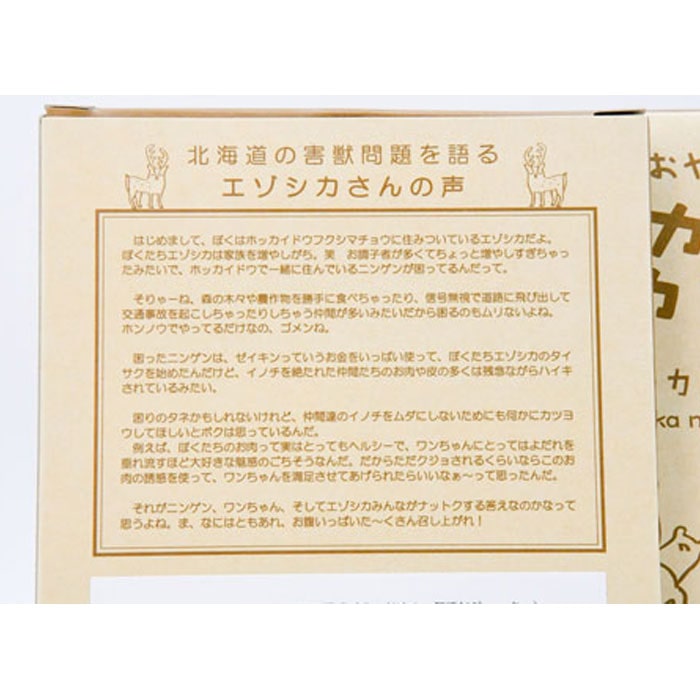 北海道の害獣問題を語る
エゾシカさんの声
はじめまして、ぼくはホッカイドウフクシマチョウに住みついているエゾシカだよ。
ぼくたちエゾシカは家族を増やしがち。笑　お調子者が多くてちょっと増やしすぎちゃっ
たみたいで、ホッカイドウで一緒に住んでいるニンゲンが困ってるんだって。
そりゃーね、森の木々や農作物を勝手に食べちゃったり、信号無視で道路に飛び出して
交通事故を起こしちゃったりしちゃう仲間が多いみたいだから困るのもムリないよね。
ホンノウでやってるだけなの、ゴメンね。
困ったニンゲンは、ゼイキンっていうお金をいっぱい使って、ぼくたちエゾシカのタイ
サクを始めたんだけど、イノチを絶たれた仲間たちのお肉や皮の多くは残念ながらハイキ
されているみたい。
困りのタネかもしれないけれど、仲間達のイノチをムダにしないためにも何かにカツヨ
ウしてほしいとボクは思っているんだ。
例えば、ぼくたちのお肉って実はとってもヘルシーで、ワンちゃんにとってはよだれを
垂れ流すほど大好きな魅惑のごちそうなんだ。だからただクジョされるくらいならこのお
肉の誘惑を使って、ワンちゃんを満足させてあげられたらいいなぁ〜って思ったんだ。
それがニンゲン、ワンちゃん、そしてエゾシカみんながナットクする答えなのかなって
思うよね。ま、なにはともあれ、お腹いっぱいた〜くさん召し上がれ！
おや
カ
カ
カ
ka n